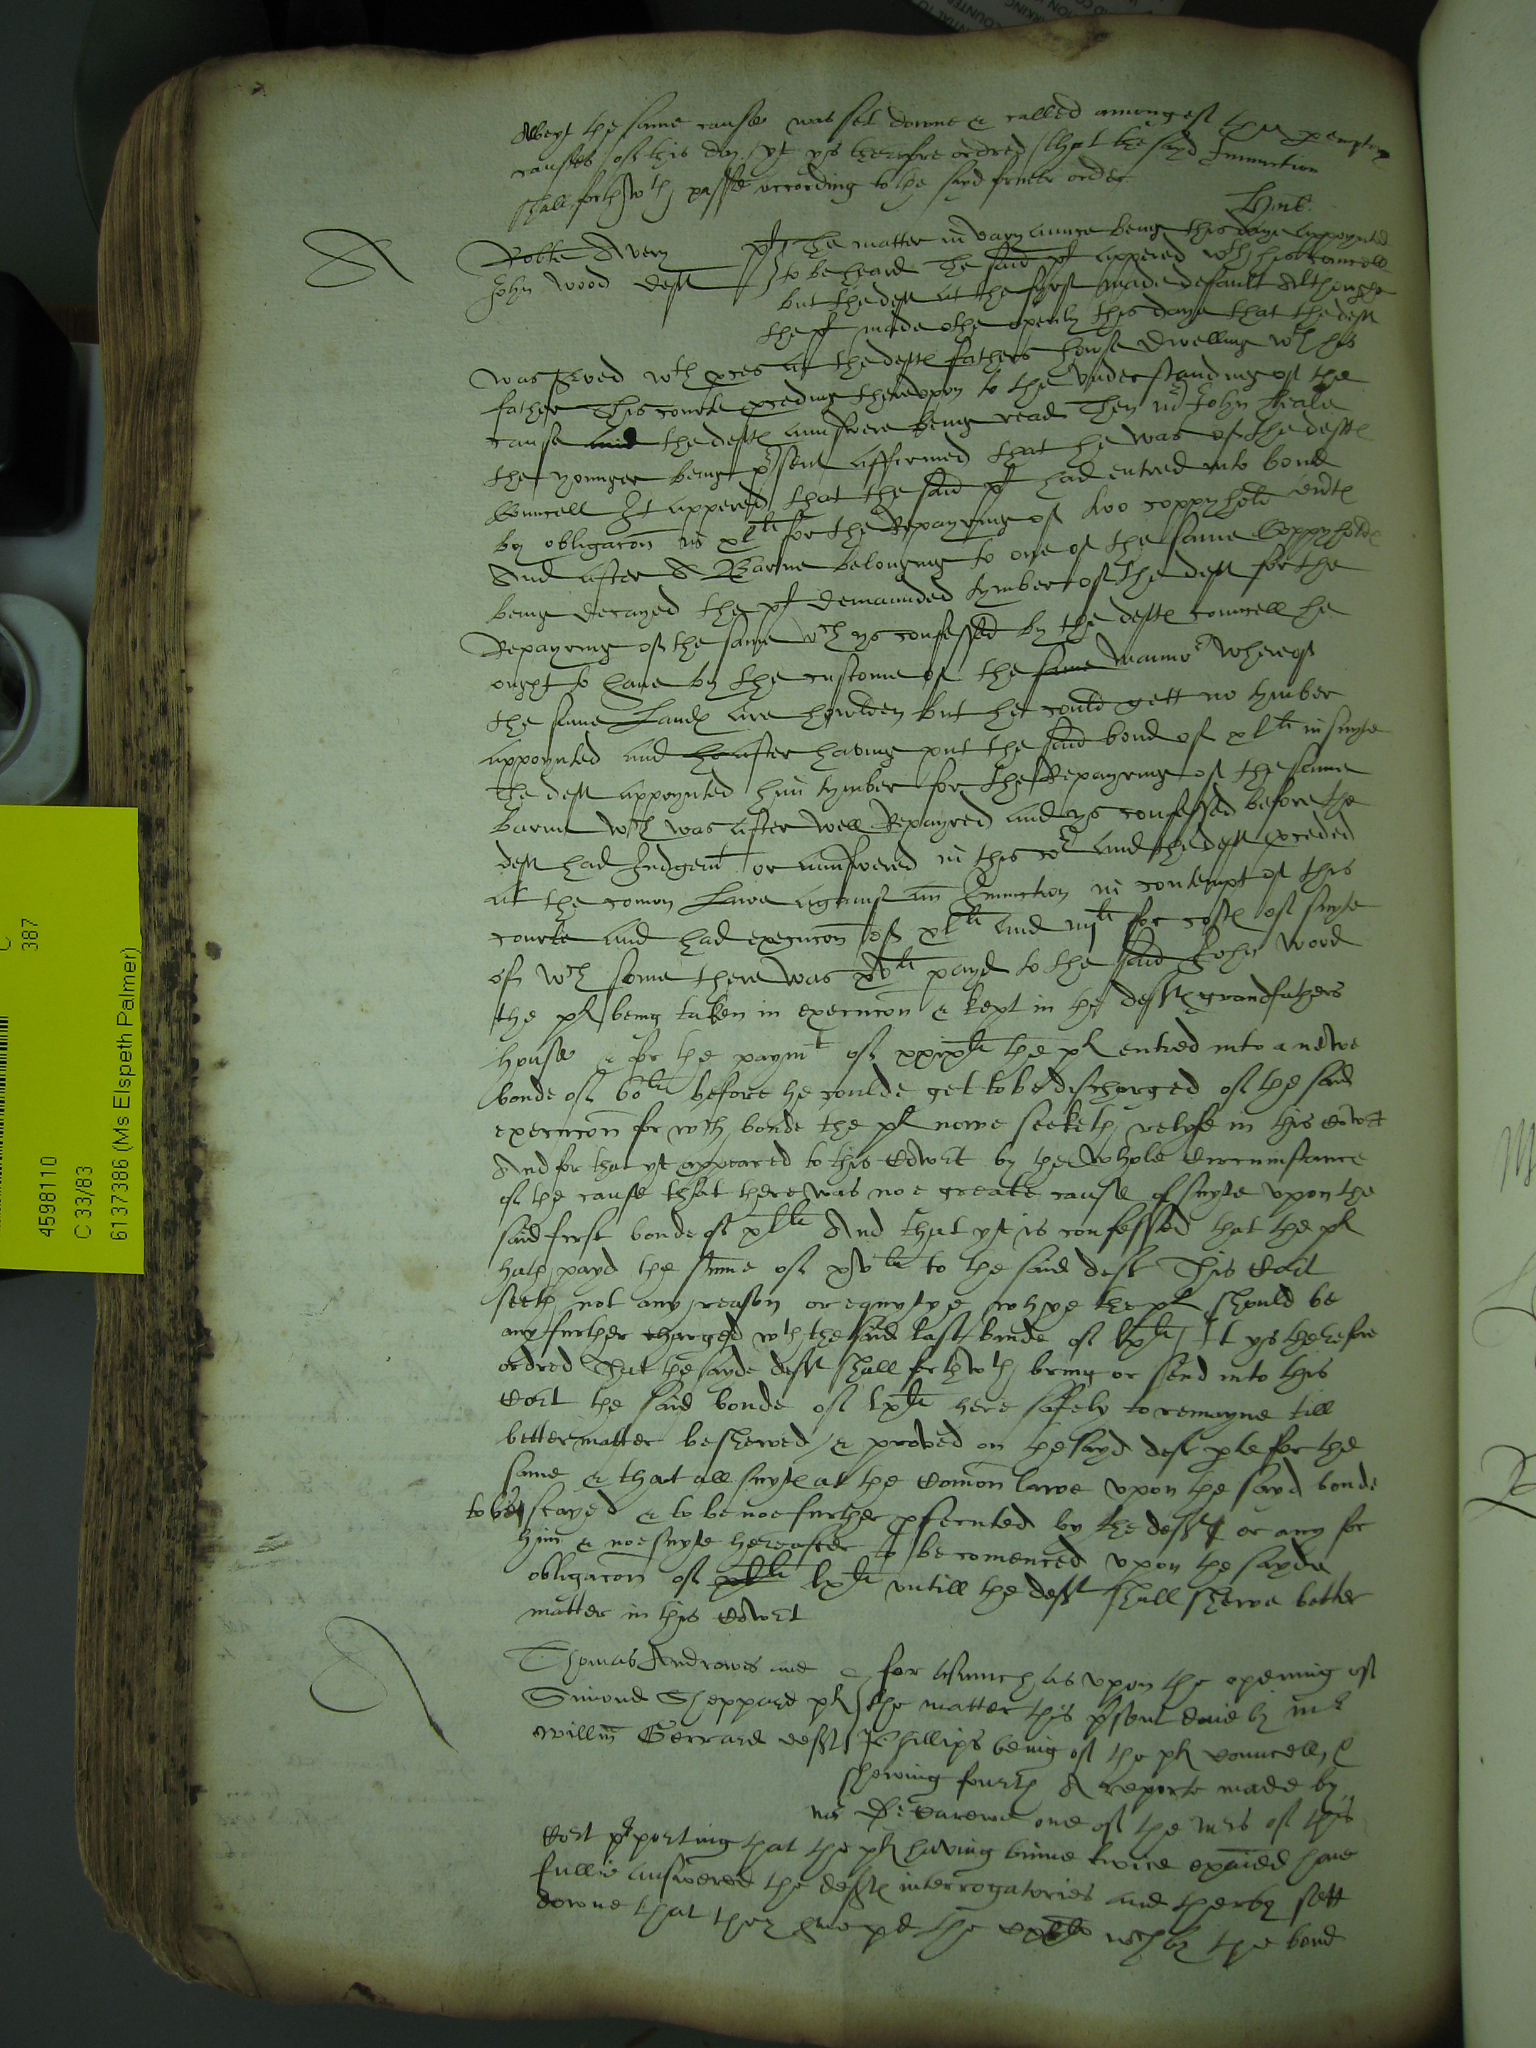 Albeyt the same cause was set downe & called amongest the peremptory
causes of this day yt ys therefore ordred that the sayd Iniunction
shall forthwth passe according to the sayd former order
A
Robte Avery plt The matter in varyaunce being this daye appoynted
John Wood deft to be heard The said plt appered wth his Councell
but the deft at the fyrst made default Althoughe
the plt made othe openly this daye that the deft
was served wth proces at the deftes fathers howse dwelling wth his
father This courte proceding thereupon to the understanding of the
cause and the deftes aunswere being read Then mr John Heale
the younger being present affirmed that he was of the deftes
Councell It appered that the said plt had entred into bond
by obligacon in xlli for the Repayring of two coppyhold
And after A Barne belonging to one of the same Coppyholdes
being decayed the plt demaunded tymber of the deft for the
Repayring of the same wch ys confessed by the deftes councell he
ought to have by the custome of the same mannor whereof
the same Landes are howlden but he could gett no tymber
appoynted and he after having put the said bond of xlli in suyte
the deft appoynted him tymber for the Repayring of the same
barne wch was after well Repayred and ys confessed before the
deft had Iudgemt or aunswered in this cot and the deft proceded
at the comon Lawe against an Iniunction in contempt of this
courte and had execucon of xlli and iijli for costes of suyte
of wch some there was xvli payd to the said John Wood
the plt being taken in execucon & kept in the deftes grandfathers
house & for the paymt of xxixli the plt entred into a newe
bonde of 60li before he coulde get to be discharged of the said
execucon for wch bonde the plt nowe seeketh relyfe in this Cowrt
And for that yt appeared to this Cowrt by the whole Circumstance
of the cause that there was noe greate cause of suyte upon the
said first bonde of xlli And that yt is confessed that the plt
hath payd the some of xvli to the said deft This Cort
seeth not any reason or equytye whye the plt should be
any further charged wth the said last bonde of lxli It ys therefore
ordred That the sayde deft shall forthwth bring or send into this
Cort the said bonde of lxli here safely to remayne till
better matter be shewed & proved on the sayd deft pte for the
same & that all suytes at the Comon lawe upon the sayd bonde
to be stayed & to be noe further prosecuted by the deft or any for
him & noe suyte hereafter to be comenced upon the sayde
obligacon of xlli lxli untill the deft shall shewe better
matter in this Cowrt
Thomas Androwes and for asmuch as upon the opening of
Simond Sheppard plt the matter this present daie by mr
Willm Gerrard deft Phillips being of the plt Councell &
shewing fourth A reporte made by
mr D: Carewe one of the mrs of this
Cort purporting that the plt having binne twice exaied have
fullie answered the deftes interrogatories and therby sett
downe that they the wch by the bond
4598110
C 33/83
61137386 (Ms Elspeth Palmer)
387